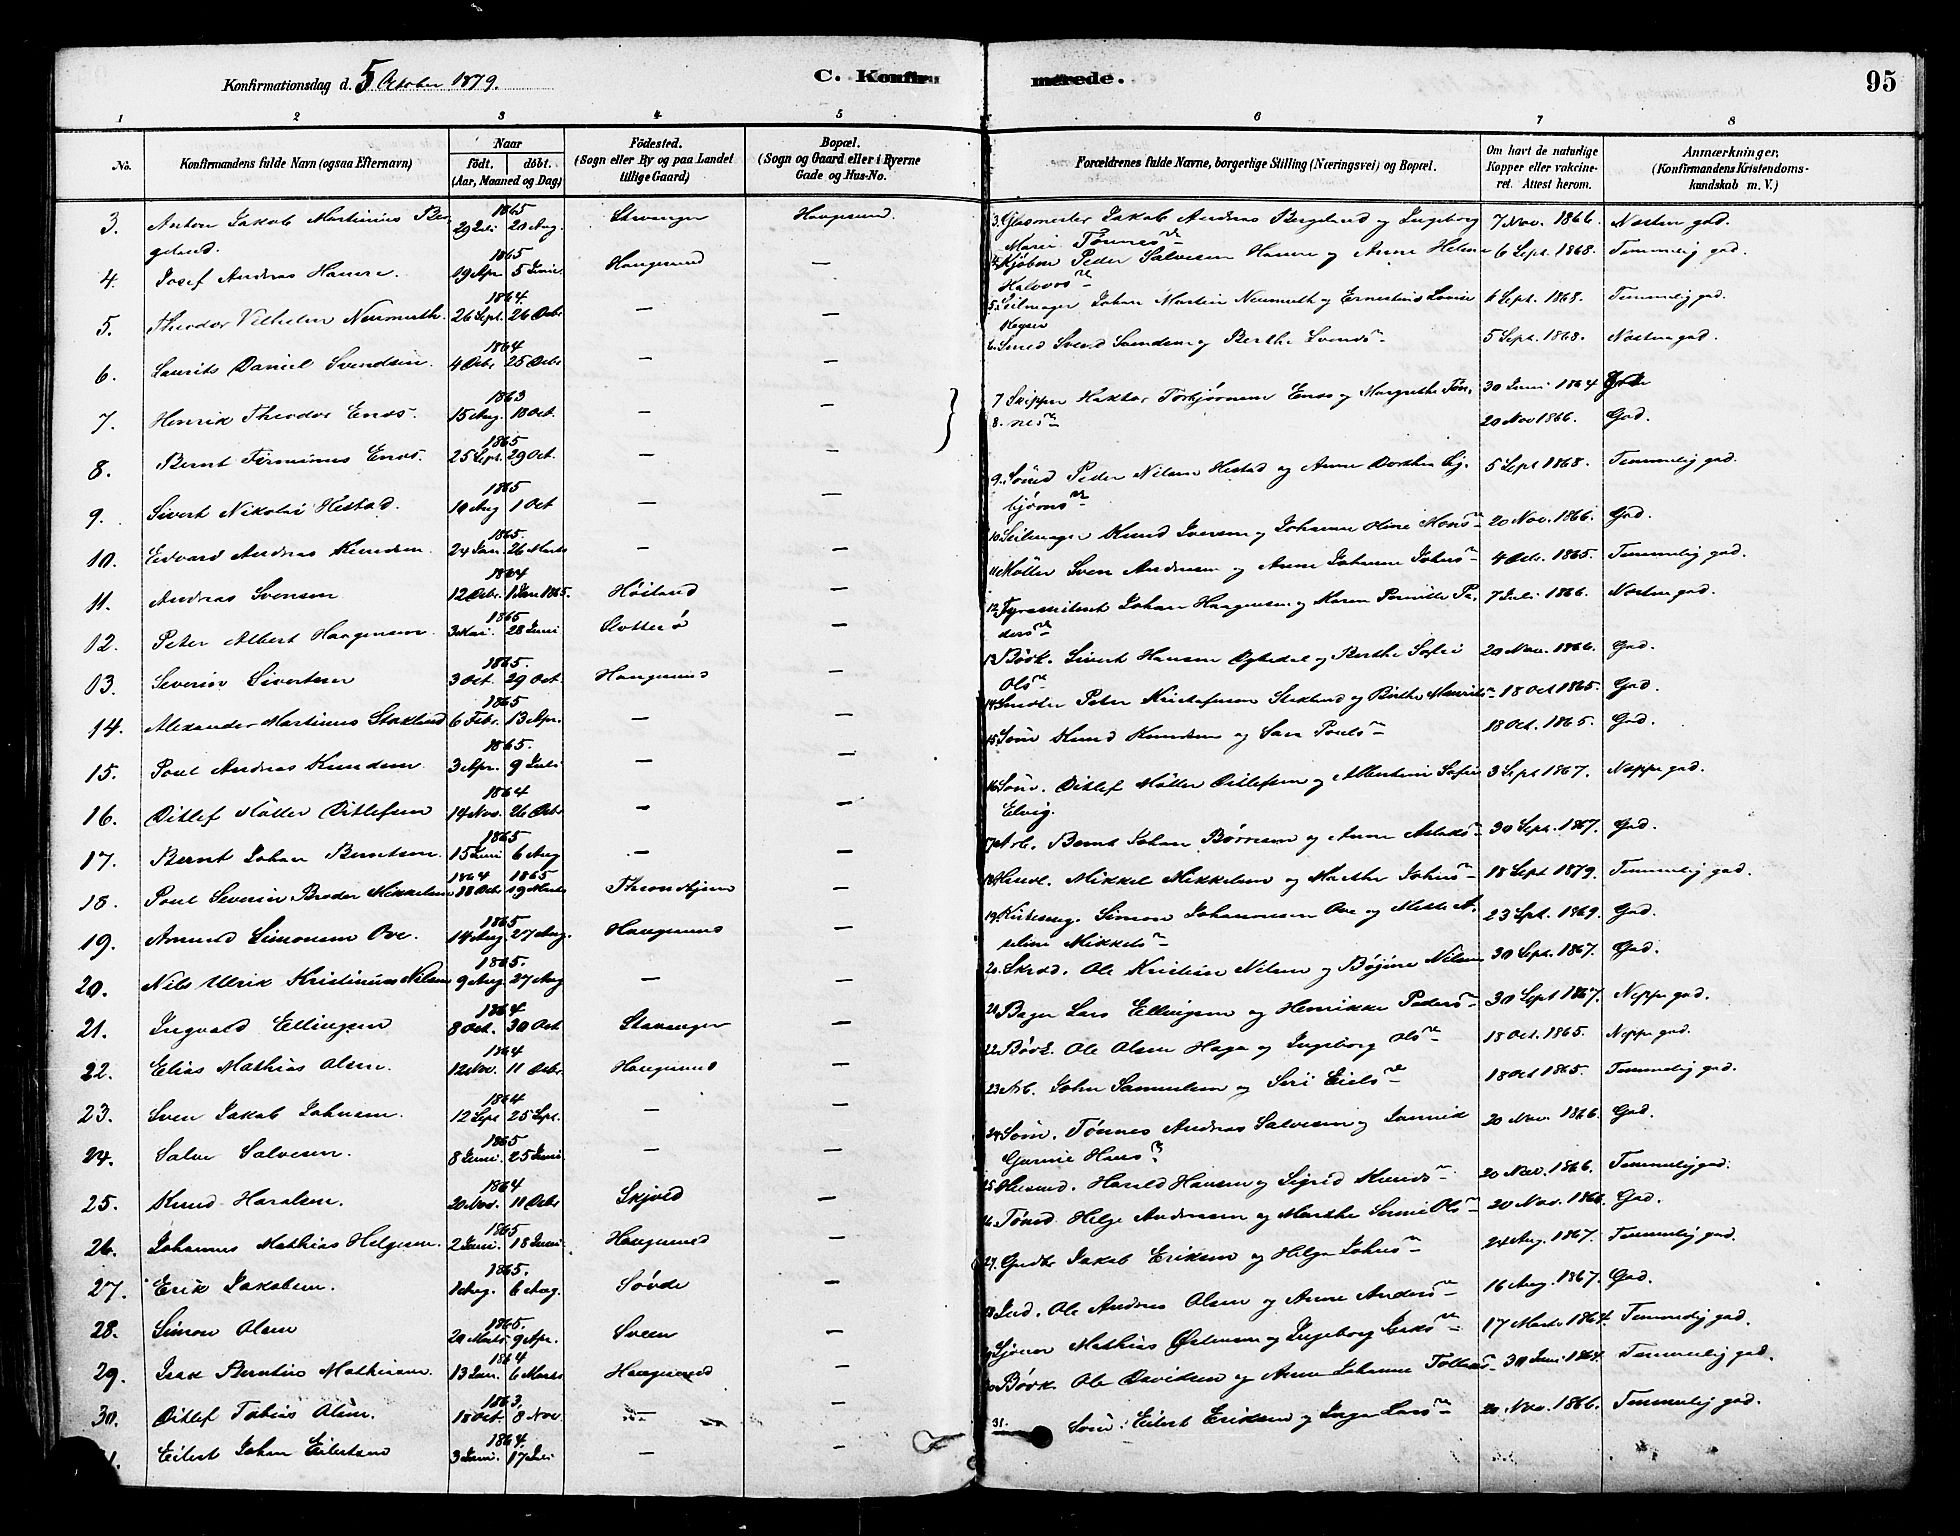 Konfirmationsdag d. 5 October 1879.
C. Konfirmerede.
95
1 2 3 4 5 6 7 8
No.
Konfirmandens fulde Navn (ogsaa Efternavn)
Naar
födt. döbt.
(Aar, Maaned og Dag)
Födested.
(Sogn eller By og paa Landet
tillige Gaard)
Bopæl.
(Sogn og Gaard eller i Byerne
Gade og Hus-No.
Forældrenes fulde Navne, borgerlige Stilling (Næringsvei) og Bopæl.
Om havt de naturlige
Kopper eller vakcine-
ret. Attest herom.
Anmærkninger,
(Konfirmandens Kristendoms-
kundskab m. V.)
1865
3. Jakob Martinius Ber 29 Juli 20 Aug. Stavanger Haugesund. 3. Glasmester Jakob Andreas Bergeland og Ingeborg 7 Nov. 1866. Næsten god.
geland. Marie Tønnesdr
1865
4. Josef Andreas Hansen. 19 Apr. 5 Juni Haugesund — 4. Kjøbm. Peder Salvesen Hansen og Anne Helene 6 Sept. 1868. Temmelig god.
Halvorsdr
1864.
5. Theodor Vilhelm Neumuth. 26 Sept. 26 Dcbr. — — 5. Seilmager Johan Martin Neumuth og Ernestine Lovise 6 Sept. 1868. Temmelig god.
Keyser
1864
6. Laurits Daniel Svendsen. 4 Dcbr. 25 Dcbr — — 6. Smed Svend Svendsen og Berthe Svends- 5 Sept. 1868. Næsten god.
1863
7. Henrik Theodor Enes. 15 Aug. 18 Oct. — — 7 Skipper Torbjørnsen Enes og Margrethe Tøn- 30 Juni 1864 Gode
8. nesdr 20 Nov 1866. God.
1865
8. Bernt Firminus Enes. 25 Sept. 29 Oct. — —
1865
9. Sivert Nikolai Hestad. 10 Aug 1 Oct — — 9. Sømd Peder Nilsen Hestad og Anne Dorthea 5 Sept 1868. Temmelig god.
bjørnsdr
1865.
10. Edvard Andreas Knudsen. 24 Jan. 26 Marts — — 10. Seilmager Knud Iversen og Johanne Oline Mons- 20 Nov. 1866. God.
1864
11. Andreas Svensen 12 Dcbr. 1 Jan 1865. Høiland — 11. Møller Sven Andersen og Anne Johanne Johns- 4 Dcbr. 1865. Temmelig god.
1865
12. Peter Albert Haagensen. 3 Mai 28 Juni Slotterø — 12. Fyrassistent Johan Haagensen og Karen Pernille Pe- 7 Juli 1866. Næsten god.
dersdr
1865.
13. Severin Sivertsen 3 Oct. 29 Oct. Haugesund — 13. Bødk. Sivert Hansen og Berthe Sofie 20 Nov. 1866. God.
Olsdr
1865
14. Alexander Martinus Stakland 6 Febr. 13 Apr. — — 14. Peter Kristofersen Stakland og Berthe 18 Oct 1865. God.
1865.
15. Poul Andreas Knudsen. 3 Apr. 9 Juli — — 15. Søm. Knud Knudsen og Sara Pouls- 18 Oct. 1865. God.
1864
16. Ditlef Møller Ditlefsen 14 Nov. 26 Dcbr — — 16. Søm. Ditlef Møller Ditlefsen og Albertine Sofie 3 Sept 1867. Neppe god.
Elvig.
1865
17. Bernt Johan Berntsen. 15 Juni 6 Aug — — 17. Arb. Bernt Johan Børresen og Anne Aslaks- 30 Sept. 1867. God.
1864 1865
18. Poul Severin Broder Mikkelsen 18 Dcbr. 19 Marts Throndhjem — 18. Mikkel Mikkelsen og Marthe Johns- 18 Sept 1879. Temmelig god.
1865
19. Amund Simonsen Ove. 14 Aug. 27 Aug. Haugesund — 19. Simon Johannesen Ove og Mette A. 23 Sept. 1869. God.
seline Mikkelsdr
1865.
20. Nils Ulrik Kristinius Nilsen 9 Aug. 27 Aug — — 20. Skræd. Ole Kristian Nilsen og Nilsen 30 Sept. 1867. God.
1864
21. Ingvald Ellingsen 8 Oct. 30 Oct Stavanger — 21. Bager Lars Ellingsen og Henrikke Peders- 30 Sept 1867. Neppe god.
1864
22. Elias Mathias Olsen. 12 Nov. 11 Dcbr. Haugesund — 22. Bødk. Ole Olsen Haga og Ingeborg Olsdr 18 Oct. 1865. Neppe god.
1864
23. Sven Jakob Johnsen. 12 Sept 25 Sept. — — 23. Arb. John Samuelsen og Siri Eielsdr 18 Oct 1865. Temmelig god.
1865
24. Salve Salvesen. 8 Juni. 25 Juni — — 24. Søm. Tønnes Andreas Salvesen og 20 Nov. 1866. God.
Hansdr
1864
25. Knud Haralsen. 20 Nov. 11 Dcbr Skjold — 25. Harald Hansen og Sigrid Knuds- 20 Nov. 1866. Temmelig god.
1865
26. Johannes Mathias Helgesen. 2 Juni. 18 Juni. Haugesund — 26. Helge Andersen og Marthe Serine Ols- 20 Nov. 1866. God.
1865.
27. Erik Jakobsen. 1 Aug. 6 Aug. Søvde — 27. Jakob Eriksen og Helga Johns- 24 Aug. 1867. Temmelig god.
1865.
28. Simon Olsen 20 Marts 9 Apr. Sveen — 28. Ind. Ole Andreas Olsen og Anne Andersdr 16 Aug. 1867. God.
1864
29. Isak Berntius Mathiasen. 13 Jan. 6 Marts Haugesund — 29. Mathias Østensen og Ingeborg 17 Marts 1864. Temmelig god.
1863.
30. Ditlef Tobias Olsen. 18 Oct. 8 Nov. — — 30. Bødk Ole Davidsen og Anne Johanne Tollefs- 30 Juni 1864. Temmelig god.
1864.
Eilert Johan Eilertsen 3 Juni. 17 Juli — — 31. Søm. Eilert Eriksen og Inga Lars- 20 Nov. 1866. Temmelig god.